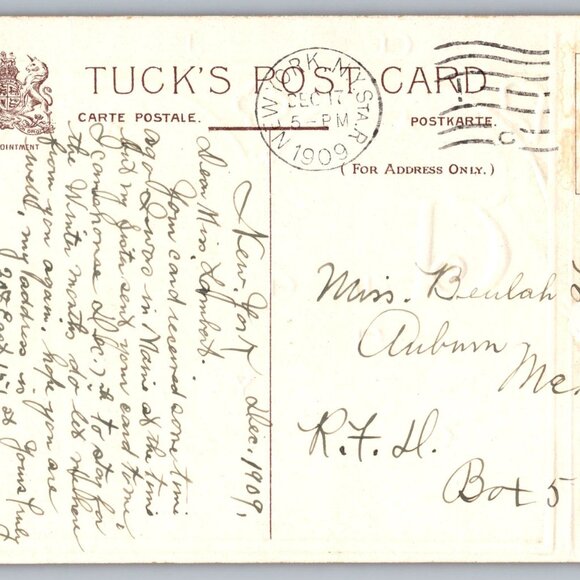 TUCK'S POST CARD
CARTE POSTALE.
POSTKARTE.
(FOR ADDRESS ONLY.)
NEW YORK, N.Y. STA. R
DEC 17
5-PM
1909
OINTMENT
New York Dec. 1909,
Dear Miss Lambert.
Your card received some time
ago I was in Maine at the time
but my sister sent your card to me,
I came home Dec. 7th to stay for
the Winter months do let me hear
from you again. hope you are
well, my address is
East 151 st Yours truly
Miss. Beulah
Auburn
Me.
R. F. D.
Box 5